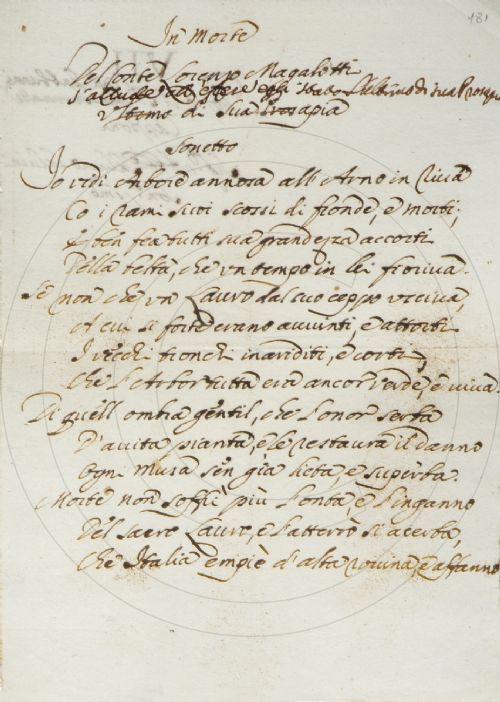 181
In Morte
Del Conte Lorenzo Magalotti
s'allude ad essere egli stato
Ultimo di Sua Prosapia
Sonetto
Io vidi Arbore annosa all'Arno in riva
Co i rami suoi scossi di fronde, e morti;
E ben fea tutti sua grandezza accorti
Della beltà, che un tempo in lei fioriva.
Se non che un Lauro dal suo ceppo usciva,
A cui si forte erano avvinti, e attorti
I vecchi tronchi inariditi, e corti,
Che l'Arbor tutta era ancor verde, e viva.
Di quell ombra gentil, che l'onor serba
D'avita pianta, e le restaura il danno
Ogni Musa sen gìa lieta, e superba.
Morte non soffrì più l'onta, e l'inganno
Del sacro Lauro, e l'atterrò sì acerba,
Che Italia empiè d'alta rovina, e affanno